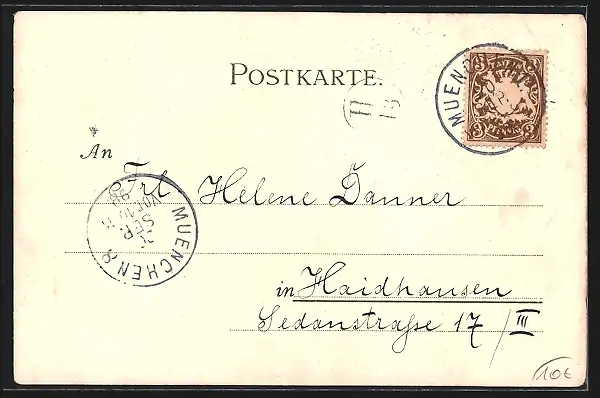 POSTKARTE.
3 3
BAYERN
3 PFENNIG 3
MUEN
II
13
An
Frl Helene Danner
MUENCHEN 8
VOR. 10-11
SEP.
98
in Haidhausen
Sedanstraße 17/III
10€